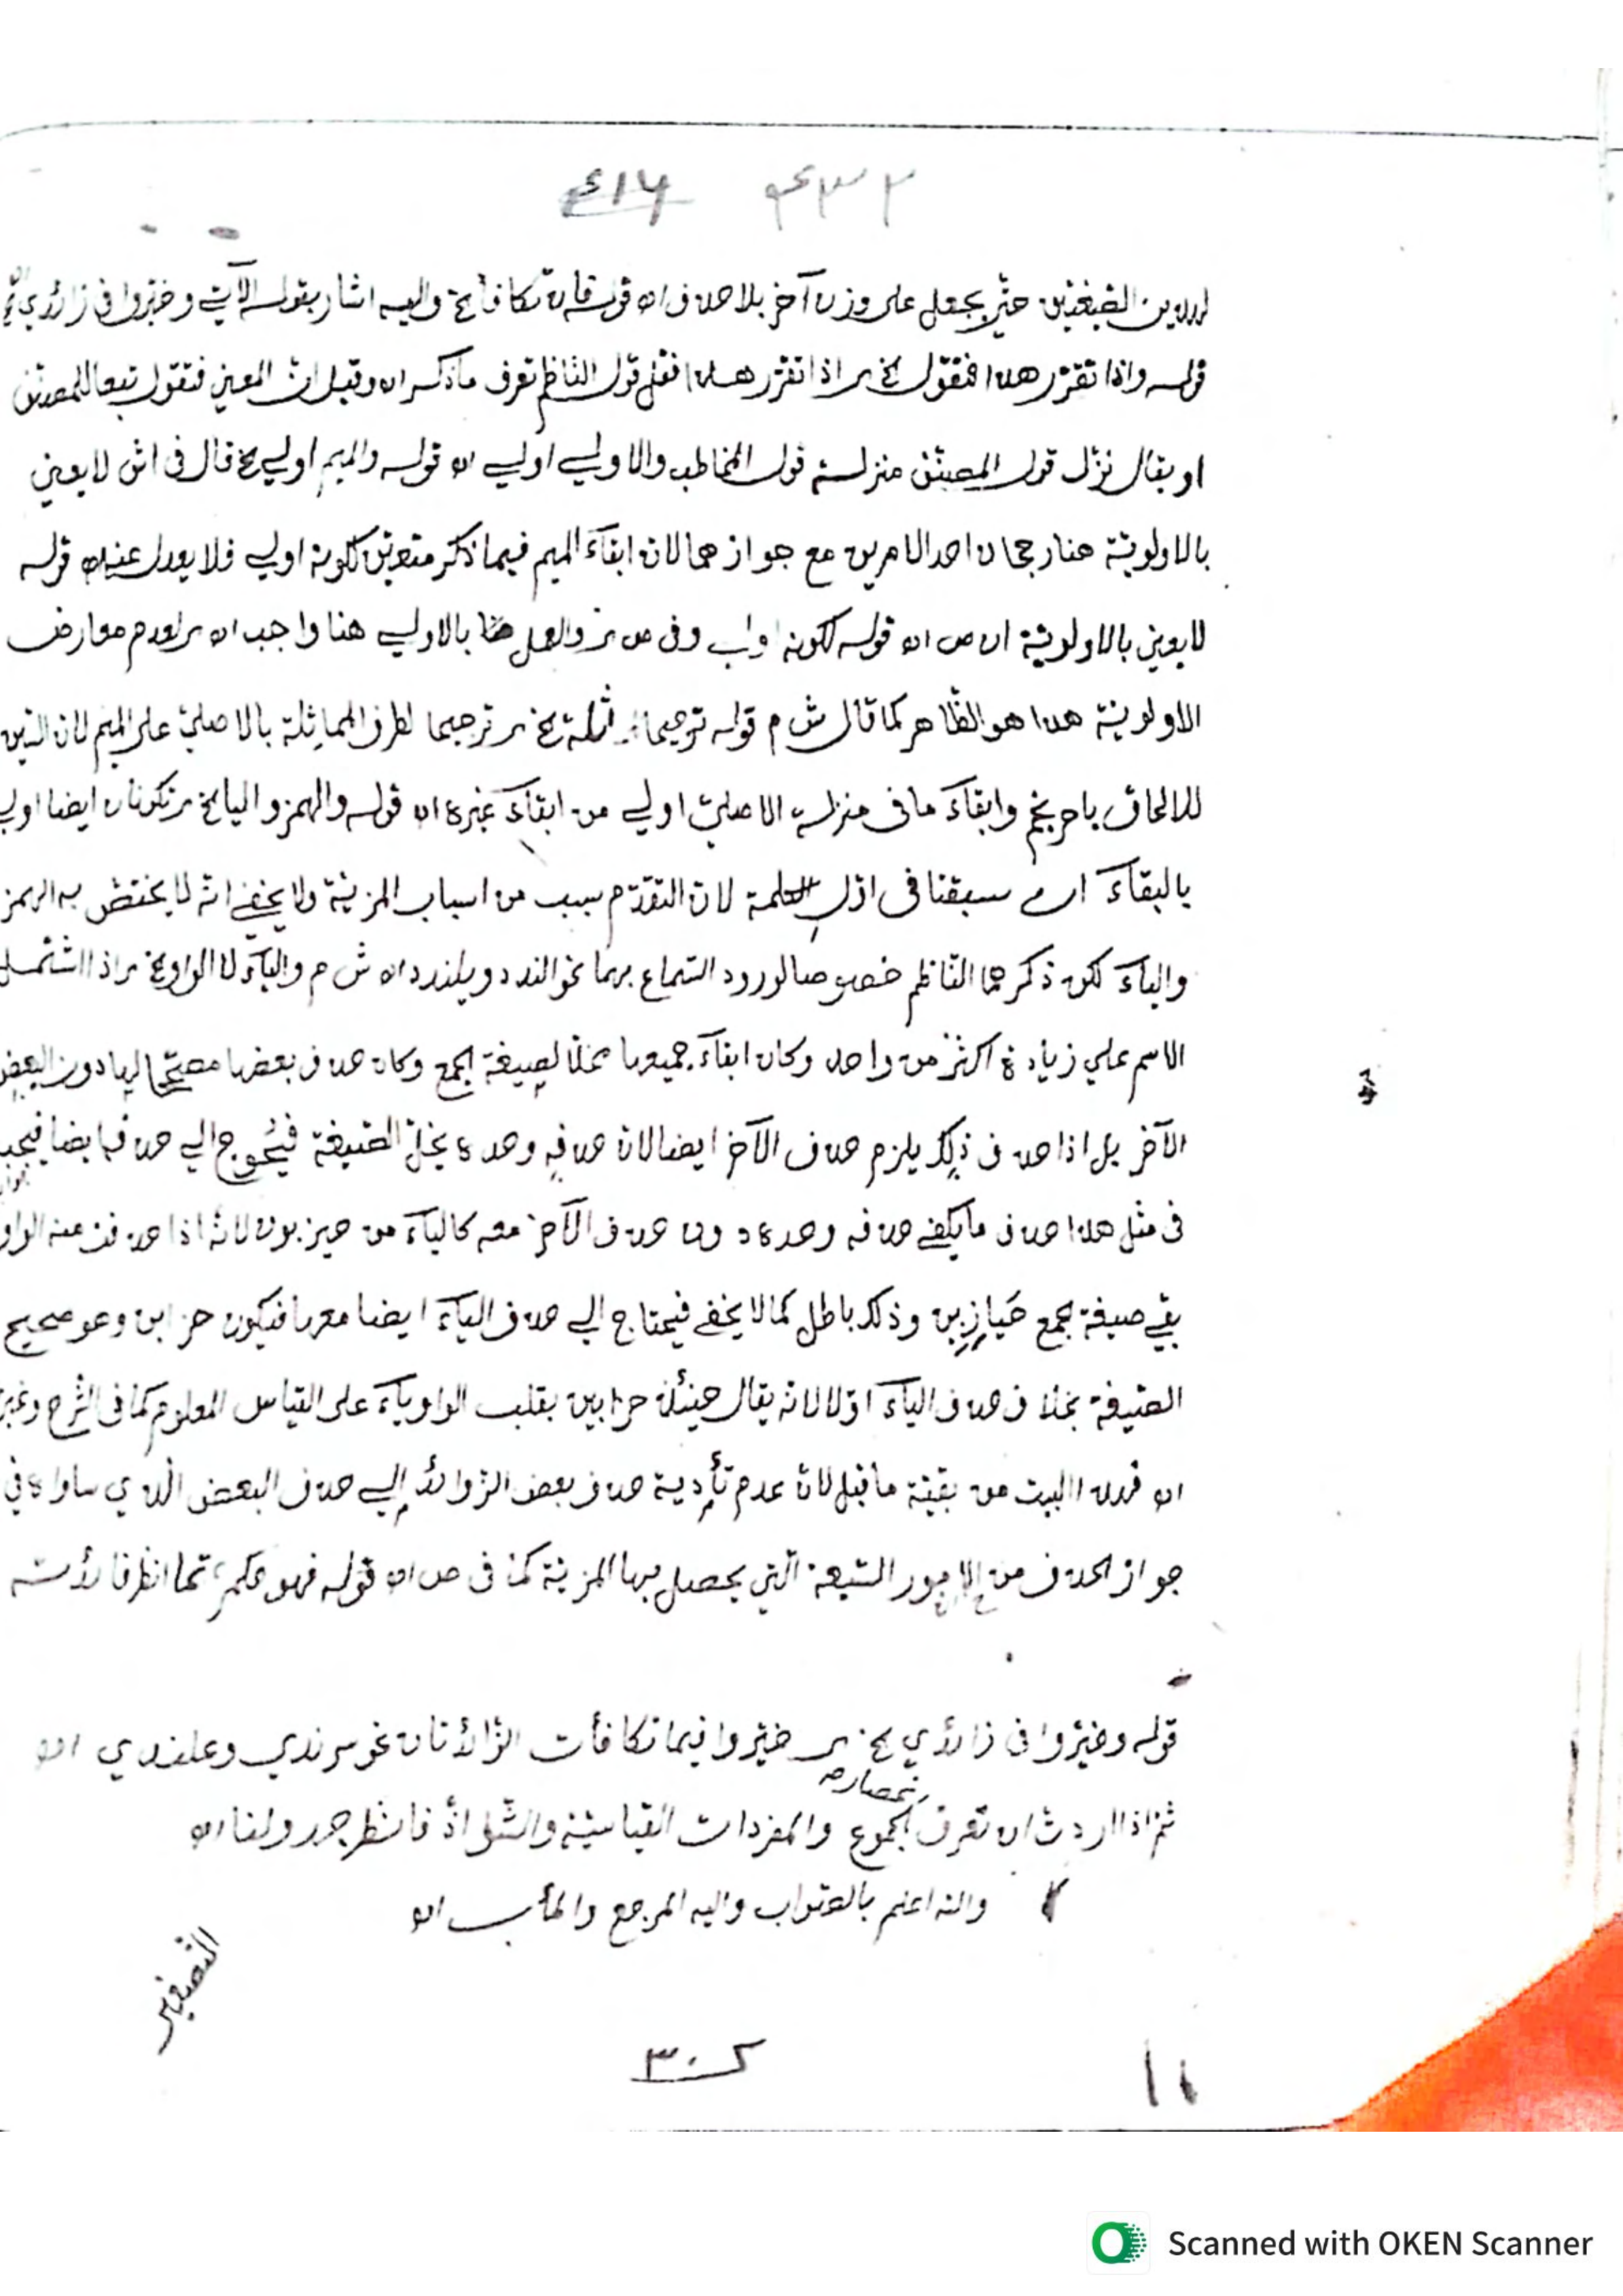 ٤٣٢ ٤١٦
الصيغتين حتى يجعل على وزن آخر بلا حذف اه قوله فان تكافأ الخ واليه اشار بقوله الآتي وخيروا في زائدي
قوله واذا تقرر هذا فنقول الخ اذا تقرر هذا قول الناظم تعرف ما ذكر اه وقيل ان المعين فنقول تبعا للمصنف
او يقال نزل قول المصنف منزلة قول المخاطب والاولى اولى اه قوله والميم اولى الخ قال في اش لا يعني
بالاولوية هنا رجحان احد الامرين مع جوازهما لان ابقاء الميم فيما ذكر متعين لكونه اولى فلا يعدل عنه اه قوله
لا يعني بالاولوية اه ص اه قوله لكونه اولى وفي ص والعمل هنا بالاولى هنا واجب اه لعدم معارض
الاولوية هذا هو الظاهر كما قال ش م قوله ترجيحا الخ ترجيحا لطرف المماثلة بالاصلي على الميم لان السين
للالحاق باحرنجم وابقاء ما في منزلة الاصلي اولى من ابقاء غيره اه قوله والهمز واليا الخ تكونان ايضا اولى
بالبقاء اي سبقا في اول الكلمة لان التقدم سبب من اسباب المزية ولا يخفى انه لا يختص به الهمز
والياء لكن ذكرهما الناظم خصوصا لورود السماع بهما نحو الندد ويلندد اه ش م والياء لا الواو الخ اذا اشتمل
الاسم على زيادة اكثر من واحد وكان ابقاء جميعها مخلا لصيغة الجمع وكان حذف بعضها مصححا لها دون البعض
الآخر بل اذا حذف ذلك يلزم حذف الآخر ايضا لان حذفه وحده يخل الصيغة فيحوج الى حذفها ايضا فيجب
في مثل هذا حذف ما يكفي حذفه وحده دون حذف الآخر معه كالياء من حيزبون لانه اذا حذفت منه الواو
بقي صيغة الجمع حيازبن وذلك باطل كما لا يخفى فيحتاج الى حذف الياء ايضا معها فيكون حزابن وهو صحيح
الصيغة بخلاف حذف الياء اولا لانه يقال حينئذ حزابين بقلب الواو ياء على القياس المعلوم كما في الشرح وغيره
اه البيت من بقية ما قبل لان عدم تأدية حذف بعض الزوائد الى حذف البعض الذي ساواه في
جواز الحذف من الامور السبعة التي يحصل بها المزية كما في ص اه قوله فهو حكم حتما انظر فائدته
قوله وخيروا في زائدي الخ خيروا فيما تكافأت الزائدتان نحو سرندى وعلندى اه
ثم اذا اردت ان تعرف الجموع والمفردات القياسية والشواذ فانظر جدولنا اه
والله اعلم بالصواب واليه المرجع والمآب اه
التصغير
Scanned with OKEN Scanner